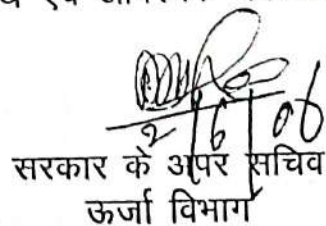 एवं
2/6/06
सरकार के अपर सचिव
ऊर्जा विभाग